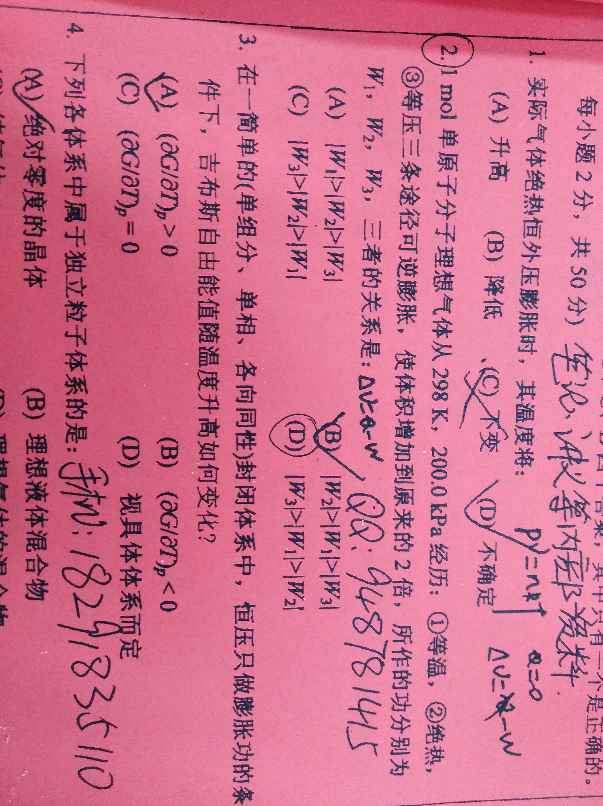 每小题 2 分，共 50 分）
其中只有一个是正确的。
笔记、讲义等内部资料
1. 实际气体绝热恒外压膨胀时，其温度将：
(A) 升高 (B) 降低 (C) 不变 (D) 不确定
pV=nRT Q=0
2. 1 mol 单原子分子理想气体从 298 K，200.0 kPa 经历：①等温，②绝热，
③等压三条途径可逆膨胀，使体积增加到原来的 2 倍，所作的功分别为
W₁，W₂，W₃，三者的关系是：
QQ：948781415
(A) |W₁|>|W₂|>|W₃| (B) |W₂|>|W₁|>|W₃|
(C) |W₃|>|W₂|>|W₁| (D) |W₃|>|W₁|>|W₂|
3. 在一简单的(单组分、单相、各向同性)封闭体系中，恒压只做膨胀功的条
件下，吉布斯自由能值随温度升高如何变化？
(A) (∂G/∂T)ₚ > 0 (B) (∂G/∂T)ₚ < 0
(C) (∂G/∂T)ₚ = 0 (D) 视具体体系而定
4. 下列各体系中属于独立粒子体系的是：
手机：18291835110
(A) 绝对零度的晶体 (B) 理想液体混合物